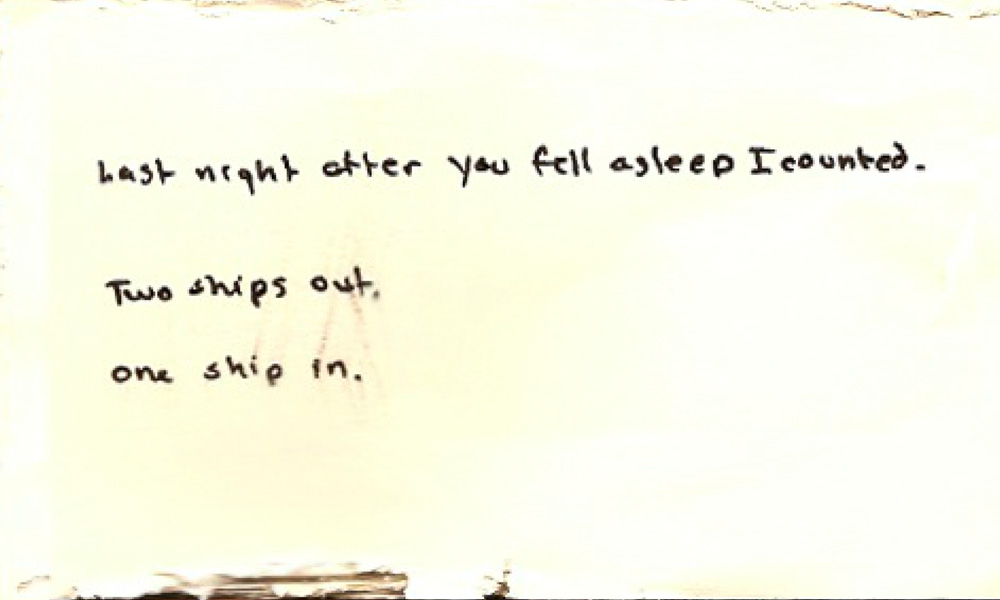 Last night after you fell asleep I counted.
Two ships out.
one ship in.